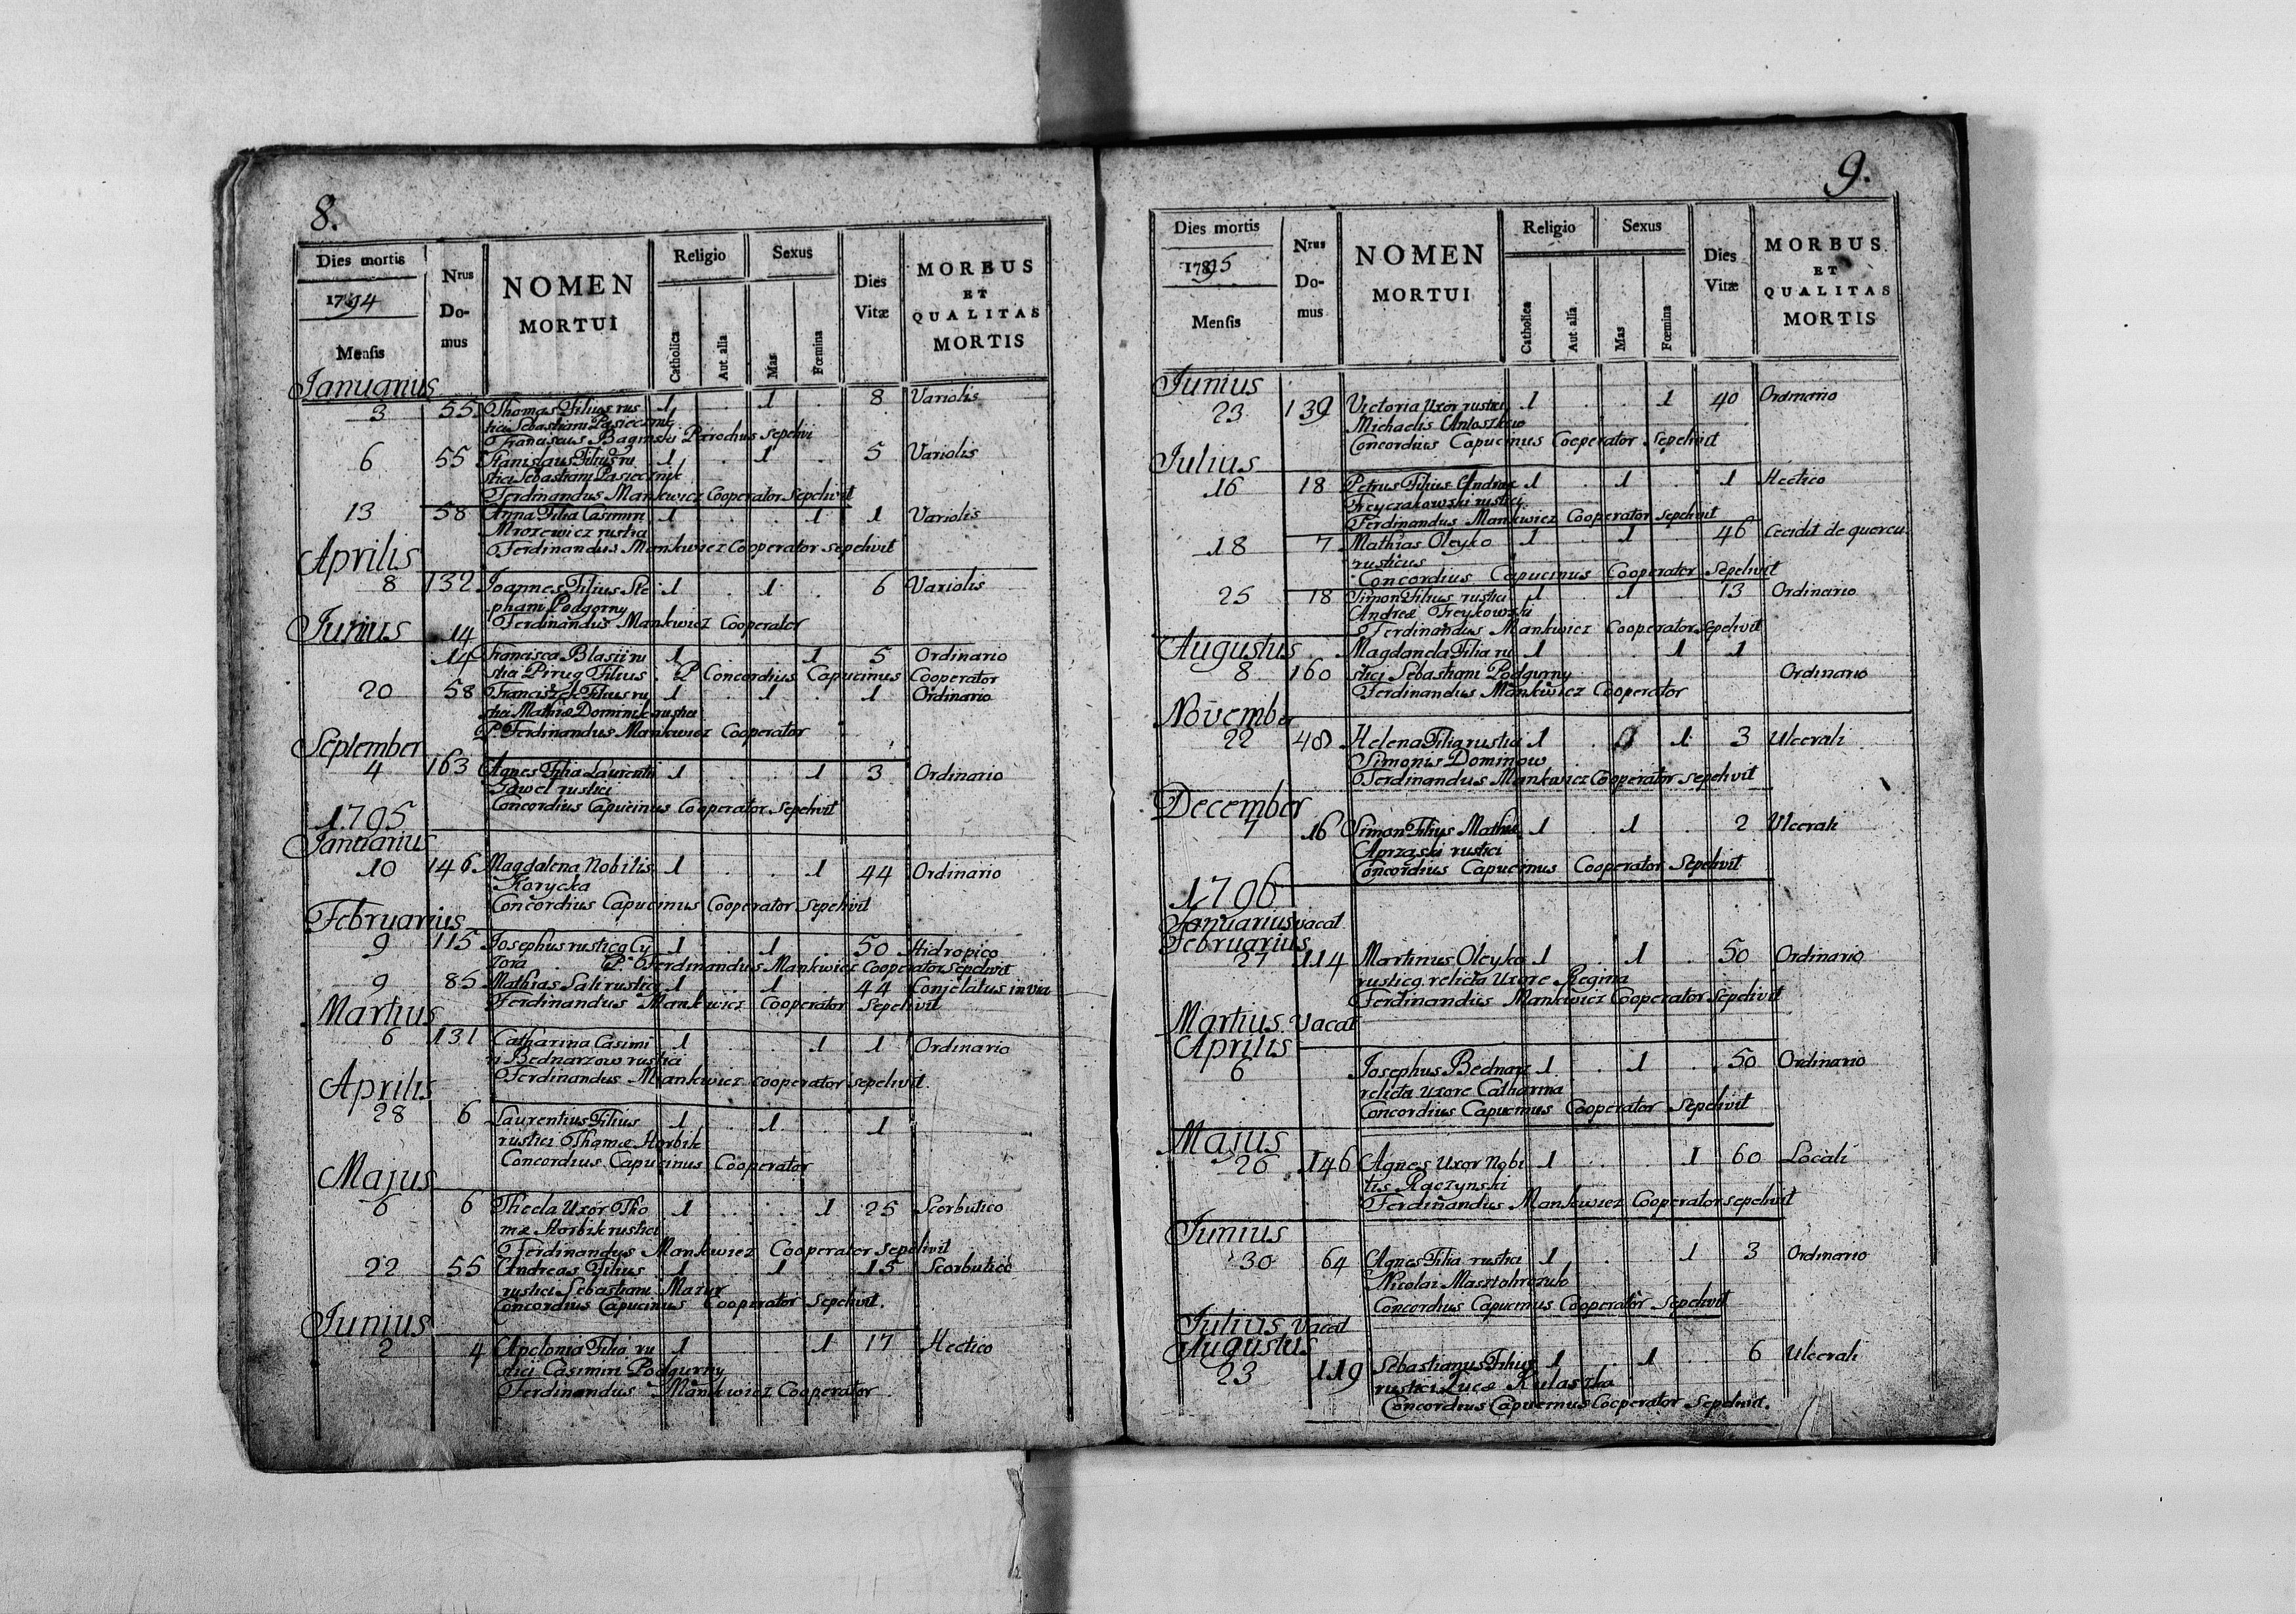 8.
Dies mortis
1794
Mensis
Nrus Domus
NOMEN MORTUI
Religio
Catholica
Aut. alia
Sexus
Mas
Fœmina
Dies Vitæ
MORBUS ET QUALITAS MORTIS
Januarius
3 55 Thomas Filius rus 1 . 1 . 8 Variolis
tici Sebastiani Pasiecznik
Franciscus Baginski Parochus sepelivi
6 55 Stanislaus Filius ru 1 . 1 . 5 Variolis
stici Sebastiani Pasiecznik
Ferdinandus Mankwicz Cooperator Sepelivit
13 58 Anna Filia Casimiri 1 . . 1 1 Variolis
Mrozewicz rustici
Ferdinandus Mankwicz Cooperator sepelivit
Aprilis
8 132 Joannes Filius Ste 1 . 1 . 6 Variolis
phani Podgorny
Ferdinandus Mankwicz Cooperator
Junius
14
14 Francisca Blasii ru 1 . . 1 5 Ordinario
stici Pirug Filius . P Concordius Capucinus Cooperator
20 58 Franciszek Filius ru 1 . 1 . 1 Ordinario
stici Mathiæ Dominik rustici
P. Ferdinandus Mankwicz Cooperator
September
4 163 Agnes Filia Laurentii 1 . . 1 3 Ordinario
Pawel rustici
Concordius Capucinus Cooperator Sepelivit
1795
Januarius
10 146 Magdalena Nobilis 1 . . 1 44 Ordinario
Korycka
Concordius Capucinus Cooperator Sepelivit
Februarius
9 115 Josephus rusticq Cy 1 . 1 . 50 Hidropico
Tora . P. Ferdinandus Mankwicz Cooperator sepelivit
9 85 Mathias Sali rustici 1 . 1 . 44 Conjelatus in via
Ferdinandus Mankwicz Cooperator Sepelivit
Martius
6 131 Catharina Casimi 1 . . 1 1 Ordinario
ri Bednarzow rustici
Ferdinandus Mankwicz cooperator sepelivit.
Aprilis
28 6 Laurentius Filius 1 . 1 . 1
rustici Thomæ Skorbik
Concordius Capucinus Cooperator
Majus
6 6 Thecla Uxor Tho 1 . . 1 25 Scorbutico
mæ Skorbik rustici
Ferdinandus Mankwicz Cooperator Sepelivit
22 55 Andreas Filius 1 . 1 . 15 Scorbutico
rustici Sebastiani Mazur
Concordius Capucinus Cooperator Sepelivit.
Junius
2 4 Apolonia Filia ru 1 . . 1 17 Hectico
stici Casimiri Podgurny
Ferdinandus Mankwicz Cooperator
9.
Dies mortis
1795
Mensis
Nrus Domus
NOMEN MORTUI
Religio
Catholica
Aut alia
Sexus
Mas
Fœmina
Dies Vitæ
MORBUS ET QUALITAS MORTIS
Junius
23 139 Victoria Uxor rustici 1 . . 1 40 Ordinario
Michaelis Antoszkow
Concordius Capucinus Cooperator Sepelivit
Julius
16 18 Petrus Filius Andreæ 1 . 1 . 1 Hectico
rustici
Ferdinandus Mankwicz Cooperator Sepelivit
18 7 Mathias Oleyko 1 . 1 . 46 Cecidit de quercu.
rusticus
Concordius Capucinus Cooperator Sepelivit
25 18 Simon Filius rustici 1 . 1 . 13 Ordinario
Andreæ Freykowski
Ferdinandus Mankwicz Cooperator Sepelivit
Augustus
Magdanela Filia ru 1 . . 1 1
8 160 stici Sebastiani Podgurny Ordinario
Ferdinandus Mankwicz Cooperator
November
22 48 Helena Filia rustici 1 . . 1 3 Ulcerali
Simonis Dominow
Ferdinandus Mankwicz Cooperator sepelivit
December
7 16 Simon Filius Mathiæ 1 . 1 . 2 Ulcerali
rustici
Concordius Capucinus Cooperator Sepelivit
1796
Januarius vacat
Februarius
27 114 Martinus Oleyko 1 . 1 . 50 Ordinario
rusticq. relicta Uxore Regina
Ferdinandus Mankwicz Cooperator Sepelivit
Martius Vacat
Aprilis
6 Josephus Bednarz 1 . 1 . 50 Ordinario
relicta uxore Catharina
Concordius Capucinus Cooperator Sepelivit
Majus
26 146 Agnes Uxor Nobi 1 . . 1 60 Locali
lis Raczynski
Ferdinandus Mankwicz Cooperator sepelivit
Junius
30 64 Agnes Filia rustici 1 . . 1 3 Ordinario
Nicolai
Concordius Capucinus Cooperator Sepelivit
Julius Vacat
Augustus
23 119 Sebastianus Filius 1 . 1 . 6 Ulcerali
rustici Lucæ Kulaszka
Concordius Capucinus Cooperator Sepelivit.